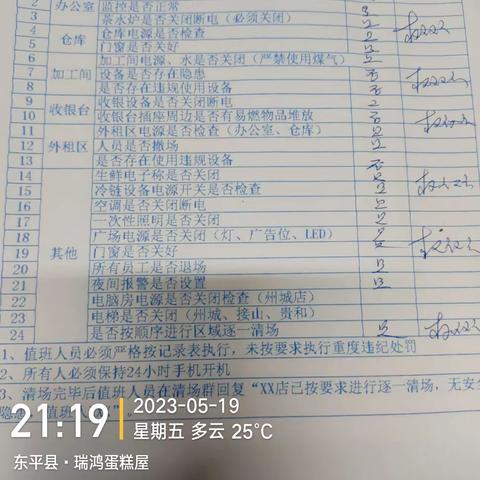 2 办公室 监控是否正常
3 茶水炉是否关闭断电（必须关闭）
4 仓库 仓库电源是否检查
5 门窗是否关好
6 加工间电源、水是否关闭（严禁使用煤气）
7 加工间 设备是否存在隐患 否
8 是否存在违规使用设备 否
9 收银台 收银设备是否关闭断电
10 收银台插座周边是否有易燃物品堆放 否
11 外租区电源是否检查（办公室、仓库）
12 外租区 人员是否撤场
13 是否存在使用违规设备 否
14 生鲜电子称是否关闭
15 冷链设备电源开关是否检查
16 空调是否关闭断电
17 一次性照明是否关闭
18 其他 广场电源是否关闭（灯、广告位、LED）
19 门窗是否关好
20 所有员工是否退场
21 夜间报警是否设置
22 电脑房电源是否关闭检查（州城店）
23 电梯是否关闭（州城、接山、贵和）
24 是否按顺序进行区域逐一清场
1、值班人员必须严格按记录表执行，未按要求执行重度违纪处罚
2、所有人必须保持24小时手机开机
3、清场完毕后值班人员在清场群回复“XX店已按要求进行逐一清场，无安全
隐患 值班 ”。
21:19 2023-05-19
星期五 多云 25℃
东平县·瑞鸿蛋糕屋